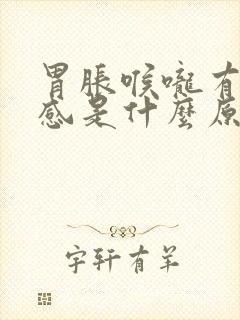 胃脹喉嚨有
感是什麼原
宇轩有羊